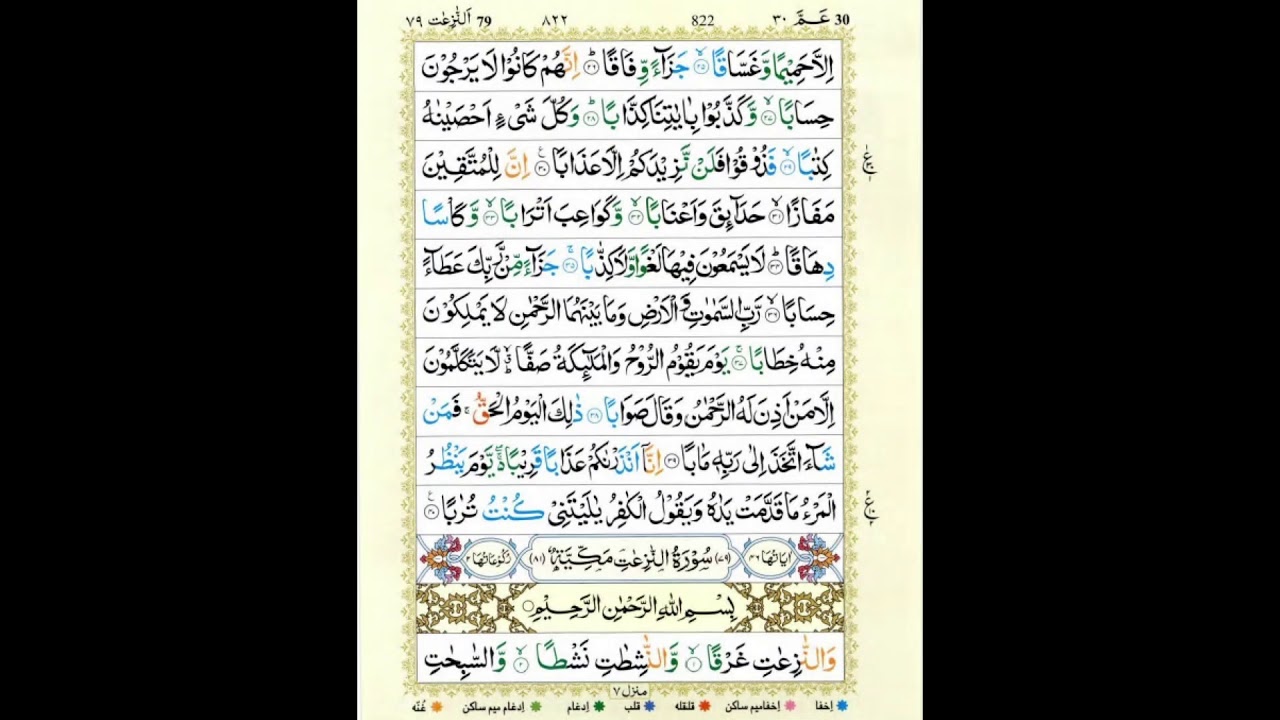 30 عَـمّ ٣٠ 822 ٨٢٢ 79 اَلنّٰزِعٰت ٧٩
اِلَّا حَمِيْمًا وَّغَسَّاقًا ۙ﴿۲۵﴾ جَزَآءً وِّفَاقًا ؕ﴿۲۶﴾ اِنَّهُمْ كَانُوْا لَا يَرْجُوْنَ
حِسَابًا ۙ﴿۲۷﴾ وَّكَذَّبُوْا بِاٰيٰتِنَا كِذَّابًا ؕ﴿۲۸﴾ وَكُلَّ شَیْءٍ اَحْصَيْنٰهُ
كِتٰبًا ۙ﴿۲۹﴾ فَذُوْقُوْا فَلَنْ نَّزِيْدَكُمْ اِلَّا عَذَابًا ﴿۳۰﴾ اِنَّ لِلْمُتَّقِيْنَ
مَفَازًا ۙ﴿۳۱﴾ حَدَآئِقَ وَاَعْنَابًا ۙ﴿۳۲﴾ وَّكَوَاعِبَ اَتْرَابًا ۙ﴿۳۳﴾ وَّكَاْسًا
دِهَاقًا ؕ﴿۳۴﴾ لَا يَسْمَعُوْنَ فِيْهَا لَغْوًا وَّلَا كِذّٰبًا ۚ﴿۳۵﴾ جَزَآءً مِّنْ رَّبِّكَ عَطَآءً
حِسَابًا ۙ﴿۳۶﴾ رَّبِّ السَّمٰوٰتِ وَالْاَرْضِ وَمَا بَيْنَهُمَا الرَّحْمٰنِ لَا يَمْلِكُوْنَ
مِنْهُ خِطَابًا ۚ﴿۳۷﴾ يَوْمَ يَقُوْمُ الرُّوْحُ وَالْمَلٰٓئِكَةُ صَفًّا ۙؕ لَّا يَتَكَلَّمُوْنَ
اِلَّا مَنْ اَذِنَ لَهُ الرَّحْمٰنُ وَقَالَ صَوَابًا ﴿۳۸﴾ ذٰلِكَ الْيَوْمُ الْحَقُّ ۚ فَمَنْ
شَآءَ اتَّخَذَ اِلٰى رَبِّهٖ مَاٰبًا ﴿۳۹﴾ اِنَّاۤ اَنْذَرْنٰكُمْ عَذَابًا قَرِيْبًا ۖۚ يَّوْمَ يَنْظُرُ
الْمَرْءُ مَا قَدَّمَتْ يَدٰهُ وَيَقُوْلُ الْكٰفِرُ يٰلَيْتَنِیْ كُنْتُ تُرٰبًا ﴿۴۰﴾
اٰيَاتُهَا ٤٦ ﴿٧٩﴾ سُوْرَةُ النّٰزِعٰتِ مَكِّيَّةٌ ﴿٨١﴾ رُكُوْعَاتُهَا ٢
بِسْمِ اللّٰهِ الرَّحْمٰنِ الرَّحِيْمِ
وَالنّٰزِعٰتِ غَرْقًا ۙ﴿۱﴾ وَّالنّٰشِطٰتِ نَشْطًا ۙ﴿۲﴾ وَّالسّٰبِحٰتِ
منزل ٧
اِخفا اِخفامیم ساکن قلقله قلب اِدغام اِدغام میم ساکن غُنّه